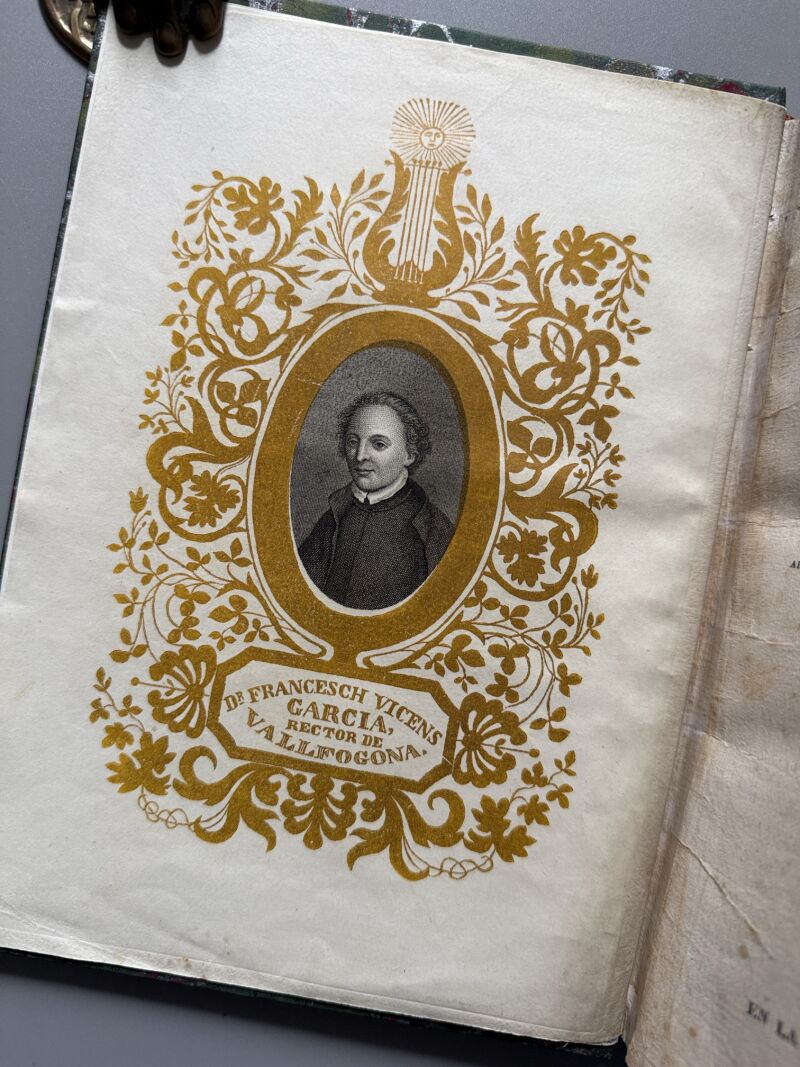 DR FRANCESCH VICENS
GARCIA,
RECTOR DE
VALLFOGONA.
EN LA